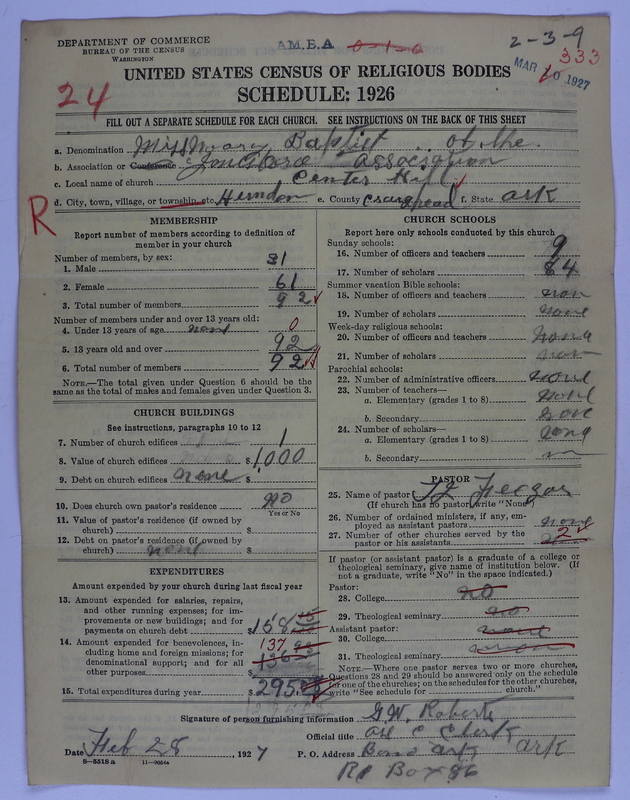 DEPARTMENT OF COMMERCE
BUREAU OF THE CENSUS
WASHINGTON
A.M.B.A 0-1-0
2-3-9
333
MAR 10 1927
24
UNITED STATES CENSUS OF RELIGIOUS BODIES
SCHEDULE: 1926
FILL OUT A SEPARATE SCHEDULE FOR EACH CHURCH. SEE INSTRUCTIONS ON THE BACK OF THIS SHEET
a. Denomination Missionary Baptist of the
b. Association or Conference Jonesboro Association
c. Local name of church Center Hill
d. City, town, village, or township, etc. Herndon e. County Craighead f. State Ark
R
MEMBERSHIP
Report number of members according to definition of
member in your church
Number of members, by sex:
1. Male 31
2. Female 61
3. Total number of members 92
Number of members under and over 13 years old:
4. Under 13 years of age none 0
5. 13 years old and over 92
6. Total number of members 92
NOTE.—The total given under Question 6 should be the
same as the total of males and females given under Question 3.
CHURCH BUILDINGS
See instructions, paragraphs 10 to 12
7. Number of church edifices 1
8. Value of church edifices $1,000
9. Debt on church edifices none $
10. Does church own pastor's residence no
Yes or No
11. Value of pastor's residence (if owned by
church) $
12. Debt on pastor's residence (if owned by
church) none $
EXPENDITURES
Amount expended by your church during last fiscal year
13. Amount expended for salaries, repairs,
and other running expenses; for im-
provements or new buildings; and for
payments on church debt $158
14. Amount expended for benevolences, in-
cluding home and foreign missions; for
denominational support; and for all
other purposes $ 137
15. Total expenditures during year $295
CHURCH SCHOOLS
Report here only schools conducted by this church
Sunday schools:
16. Number of officers and teachers 9
17. Number of scholars 84
Summer vacation Bible schools:
18. Number of officers and teachers non
19. Number of scholars none
Week-day religious schools:
20. Number of officers and teachers none
21. Number of scholars non
Parochial schools:
22. Number of administrative officers none
23. Number of teachers—
a. Elementary (grades 1 to 8) none
b. Secondary none
24. Number of scholars—
a. Elementary (grades 1 to 8) none
b. Secondary
PASTOR
25. Name of pastor
(If church has no pastor, write "None")
26. Number of ordained ministers, if any, em-
ployed as assistant pastors none
27. Number of other churches served by the
pastor or his assistants 2
If pastor (or assistant pastor) is a graduate of a college or
theological seminary, give name of institution below. (If
not a graduate, write "No" in the space indicated.)
Pastor:
28. College no
29. Theological seminary no
Assistant pastor:
30. College none
31. Theological seminary
NOTE.—Where one pastor serves two or more churches,
Questions 28 and 29 should be answered only on the schedule
for one of the churches; on the schedules for the other churches,
write "See schedule for church."
Signature of person furnishing information G.W. Roberts
Official title C Clerk
Date Feb 28, 1927 P. O. Address Bono Ark Ark
8-5518 a 11-9054a
R1 Box 86